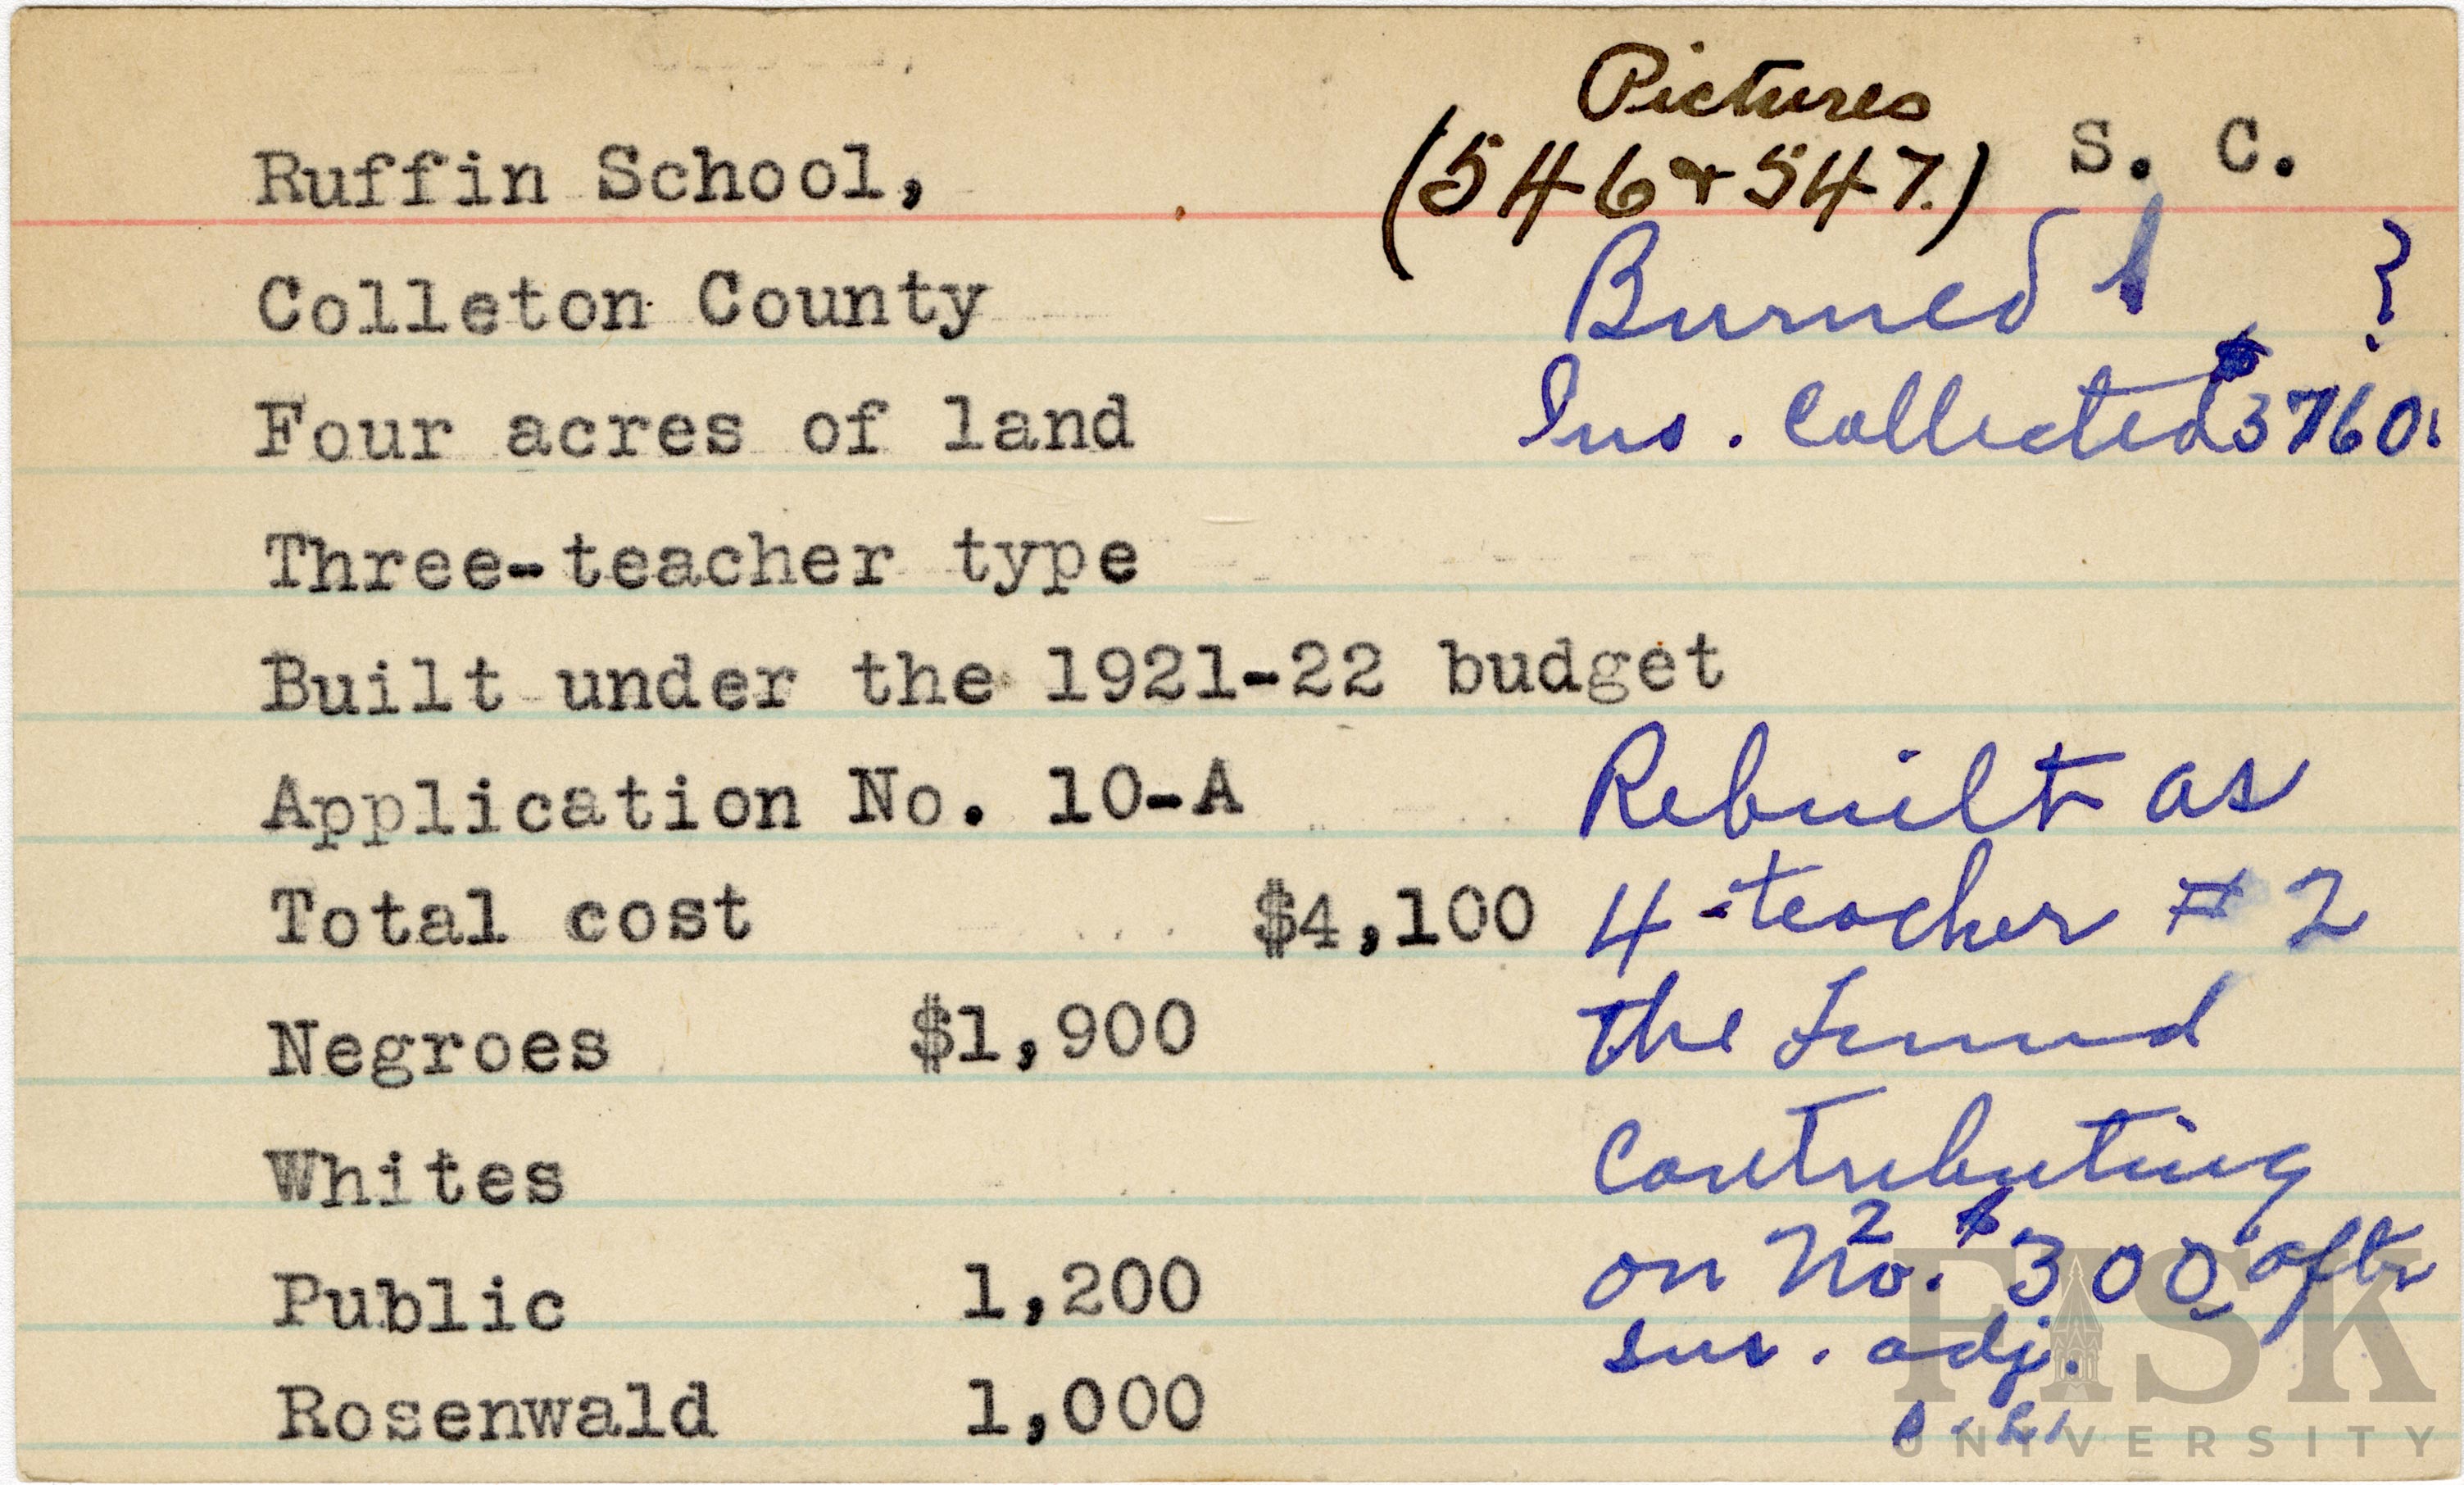 Pictures
Ruffin School, (546 & 547.) S. C.
Colleton County Burned ?
Four acres of land Ins. Collected $3760.
Three-teacher type
Built under the 1921-22 budget
Application No. 10-A Rebuilt as
Total cost $4,100 4-teacher # 2
Negroes $1,900 the Fund
Whites Contributing
Public 1,200 on No. 2 $300 aftr
ins. adj.
Rosenwald 1,000
FISK
UNIVERSITY